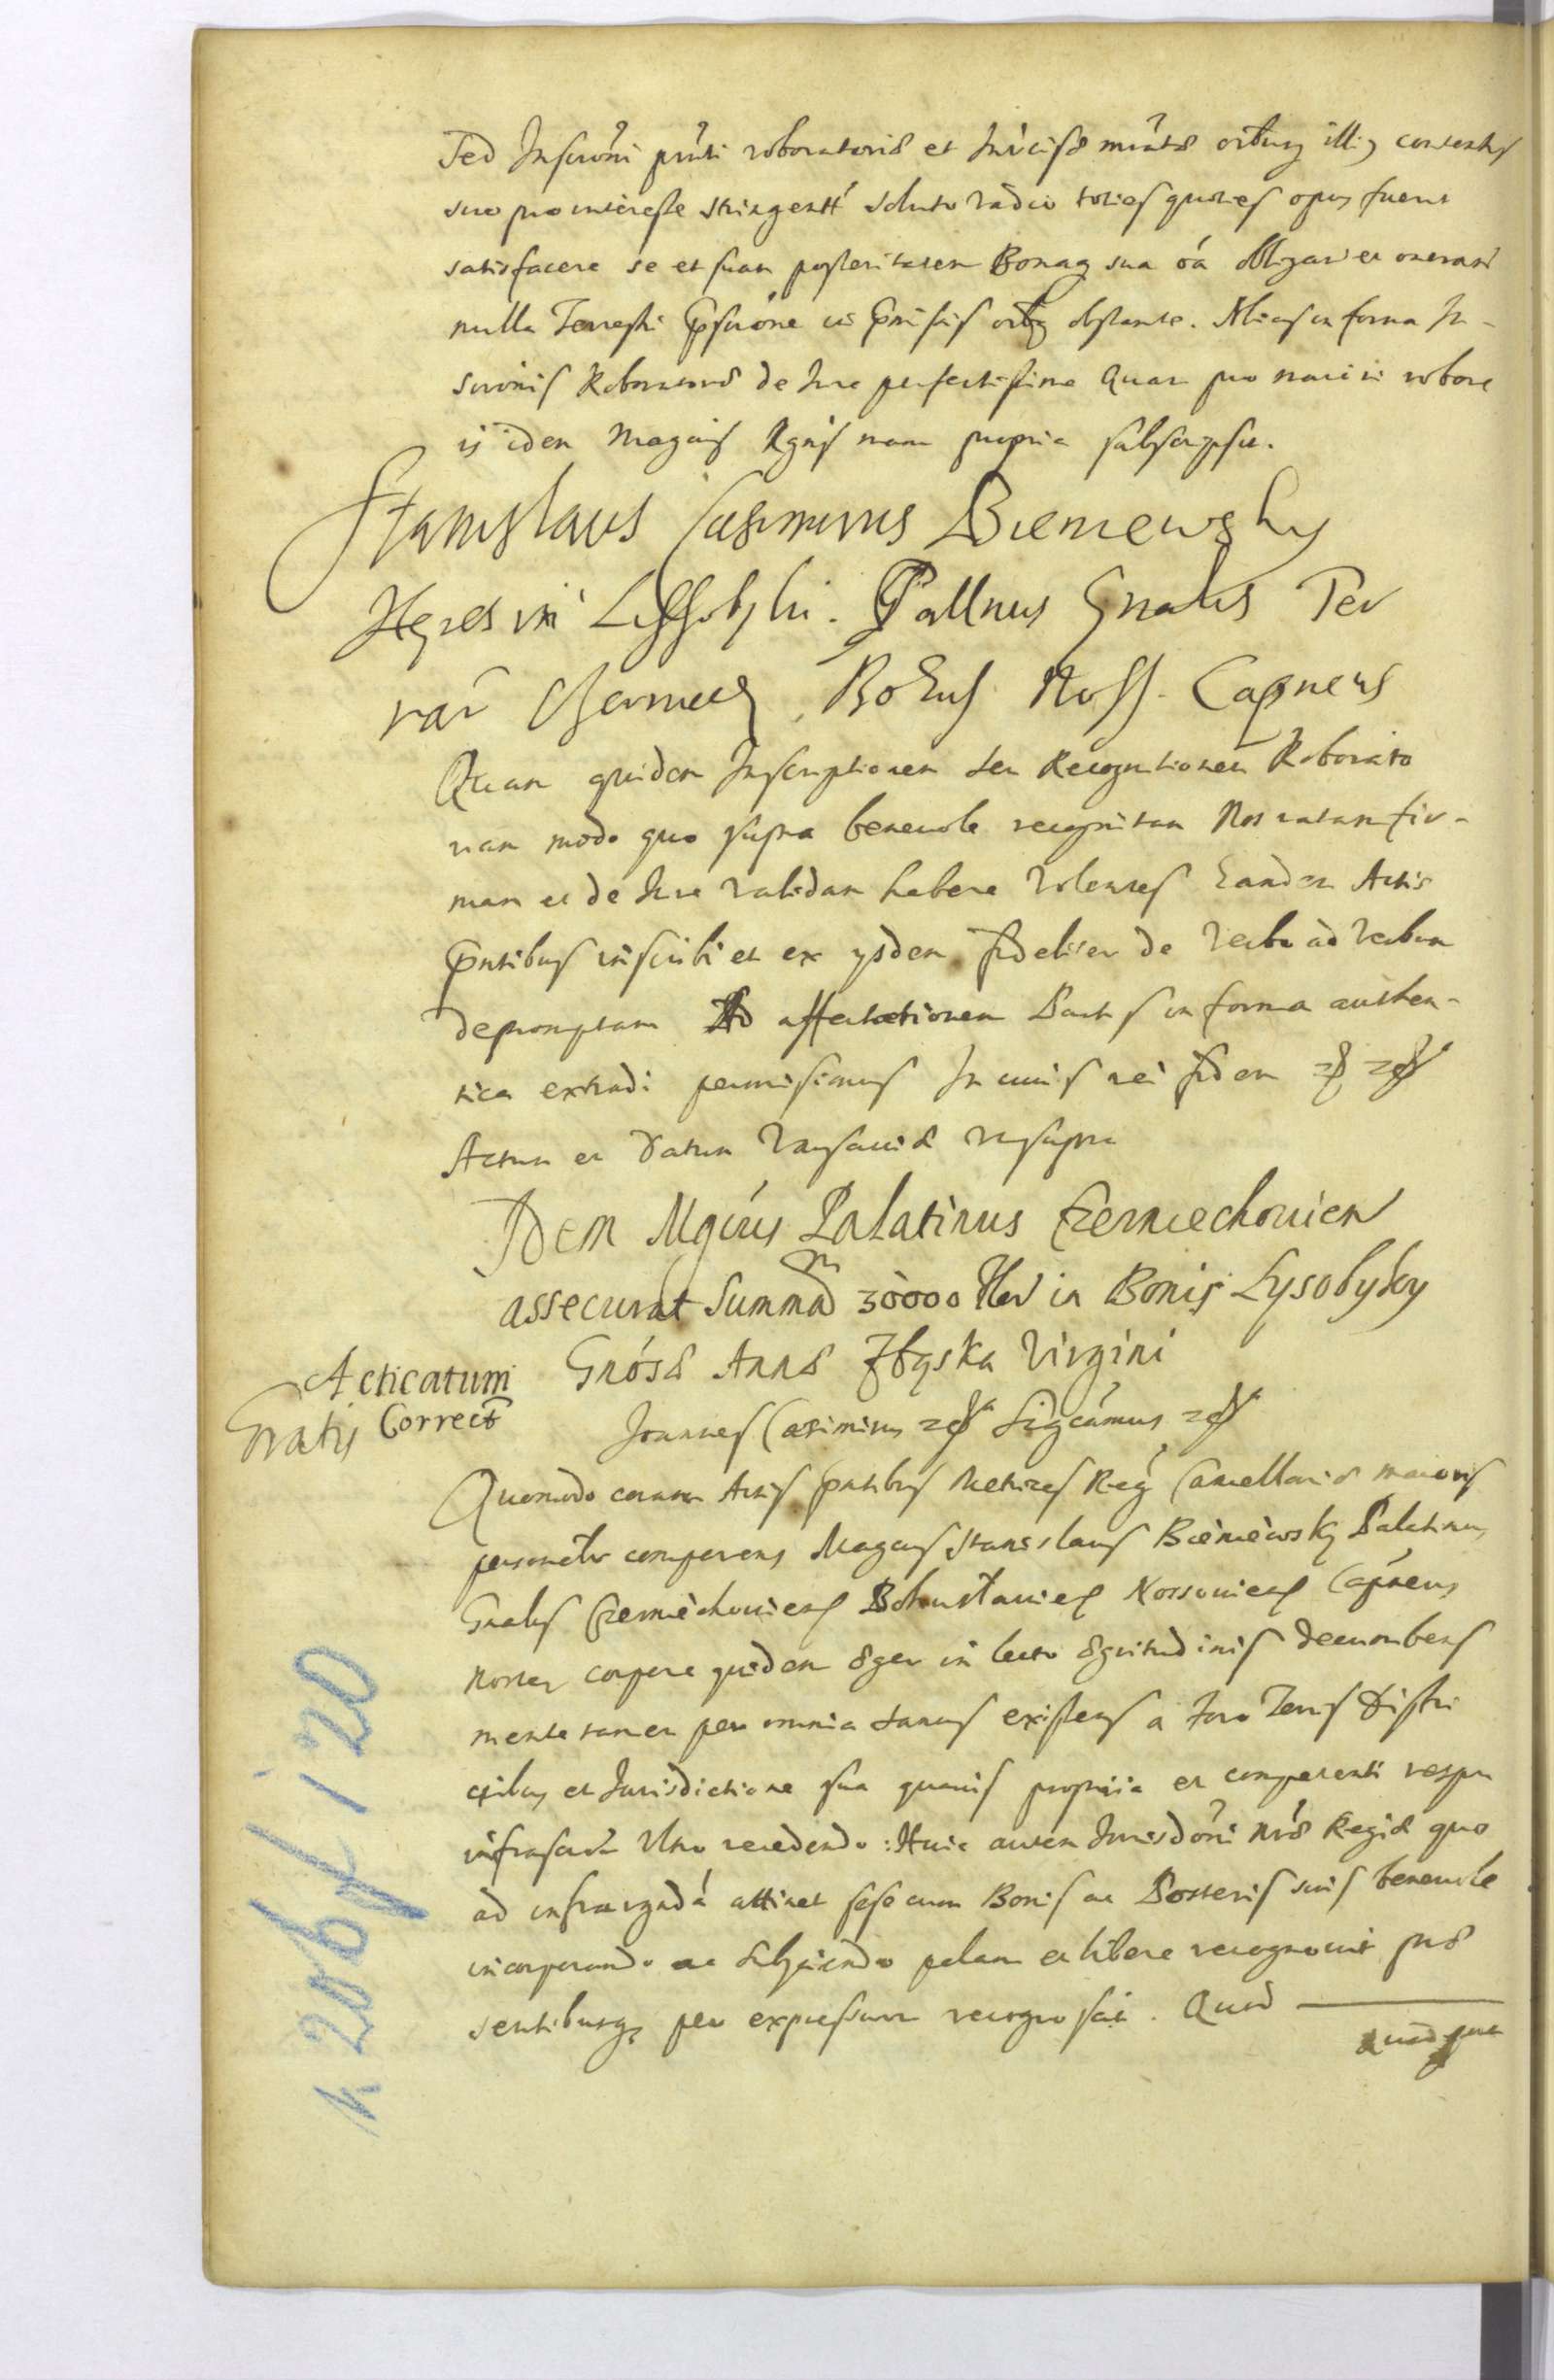 sed Inscrôni prñti roboratoriæ et Inscisæ mñtæ oibus illis contentis
suo pro interesse stringentt solito vadio toties quoties opus fuerit
satisfacere se et suam posteritatem Bonaq sua oá obligari et onerari
nulla Terrestri Pscrióne in Pmissis oibus obstante. Alias in forma In-
scrônis Roboratoriæ de Jure perfectissima Quam pro maiori robore
is idem Magcus Rgns manu propria subscripsit.
Stanislaus Casimirus Bieniewsky
Heres in Lissobyki. Pallnus Gnalis Ter
rar Czerniech, Bohus Noss. Capneus
Quam quidem Inscriptionem seu Recognitionem Roborato
riam modo quo supra benevole recognitam Nos ratam fir-
mam et de Jure validam habere Volentes Eandem Actis
Pntibus inscribi et ex ysdem fideliter de Verbo ad Verbum
depromptam Ad affectationem Partis in forma authen-
tica extradi permisimus In cuius rei fidem
Actum et Datum Varsaviæ ut supra
Idem Mgcus Palatinus Czerniechouien
assecurat Summam 30000 in Bonis Lysobyky
Gnósæ Annæ Zbąska Virgini
Acticatum
Correct
Gratis
Joannes Casimirus Sigcámus
Quomodo coram Actis pntibus Metrices Reg Cancellariæ maioris
personalr comparens Magcus Stanislaus Bieniewsky Palatinus
Gnalis Czerniechouien Bohuslauien Nossouien Capneus
noster corpore quidem æger in lecto ægritudinis decumbens
mente tamen per omnia sanus existens a foro Terris Distri
ctibus et Jurisdictione sua quauis propria et competenti respu
infrascr Ultro recedendo: Huic autem Jurisdôni nræ Regiæ quo
ad infrargndá attinet sese cum Bonis ac Posteris suis beneuole
incorporando ac subijciendo palam et libere recognouit præ
sentibusq per expressum recognoscit. Quod
Quod
k 206 f 120